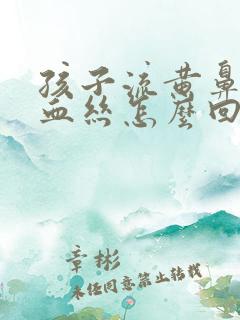 孩子流黄鼻
血丝怎麽回
章彬
未经同意禁止转载